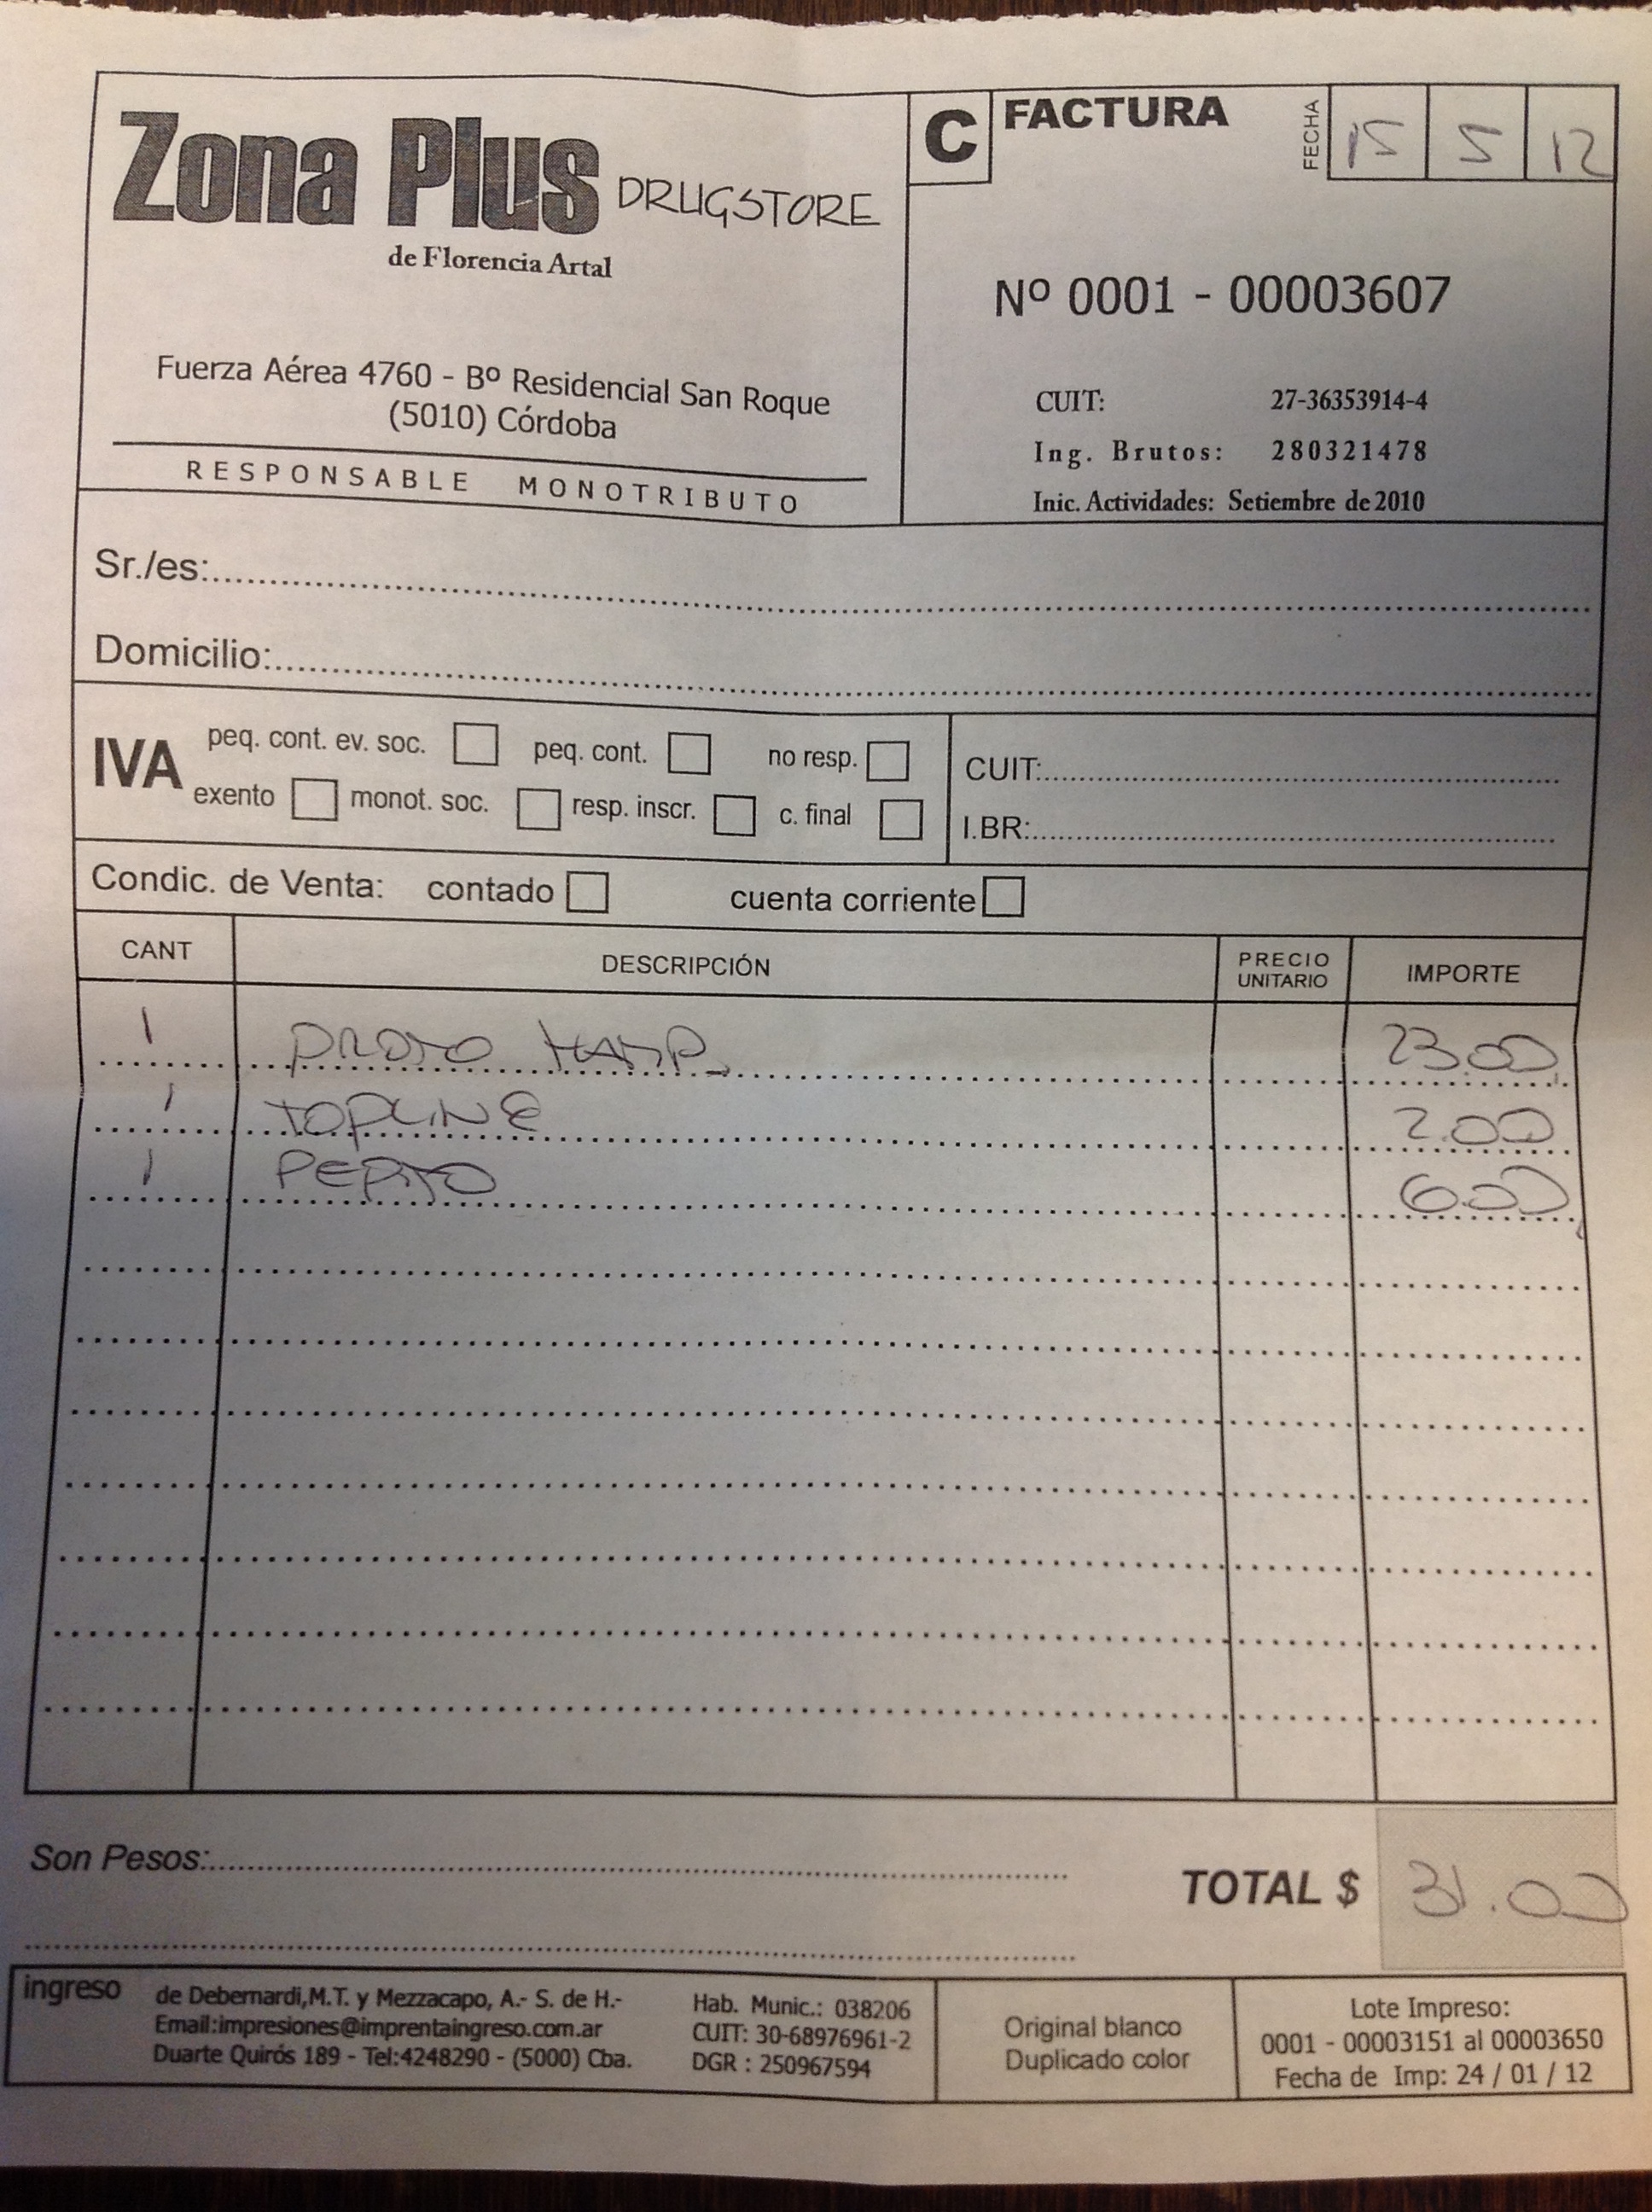 Zona Plus DRUGSTORE
de Florencia Artal
Fuerza Aérea 4760 - Bº Residencial San Roque
(5010) Córdoba
RESPONSABLE MONOTRIBUTO
C FACTURA
FECHA 15 5 12
Nº 0001 - 00003607
CUIT: 27-36353914-4
Ing. Brutos: 280321478
Inic. Actividades: Setiembre de 2010
Sr./es:
Domicilio:
IVA peq. cont. ev. soc. peq. cont. no resp.
exento monot. soc. resp. inscr. c. final
CUIT:
I.BR:
Condic. de Venta: contado cuenta corriente
CANT DESCRIPCIÓN PRECIO UNITARIO IMPORTE
1 23.00
1 TOPLINE 2.00
1 PEPITO 6.00
Son Pesos:
TOTAL $ 31.00
ingreso de Debernardi,M.T. y Mezzacapo, A.- S. de H.-
Email:impresiones@imprentaingreso.com.ar
Duarte Quirós 189 - Tel:4248290 - (5000) Cba.
Hab. Munic.: 038206
CUIT: 30-68976961-2
DGR : 250967594
Original blanco
Duplicado color
Lote Impreso:
0001 - 00003151 al 00003650
Fecha de Imp: 24 / 01 / 12